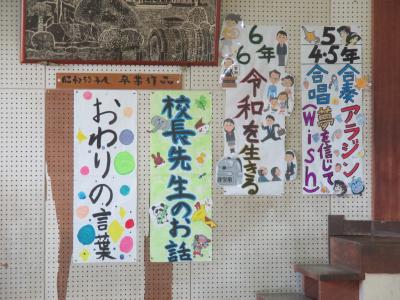 5
4・5年
合奏アラジン
合唱夢を信じて
(Wish)
6
6年
令和を生きる
校長先生のお話
おわりの言葉
卒業作品